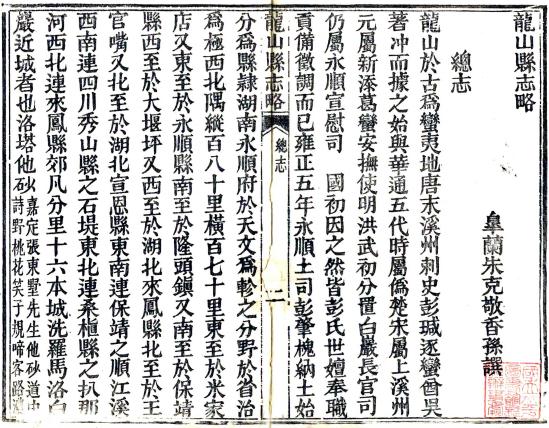 龍山縣志略
皐蘭朱克敬香孫譔
總志
龍山於古爲蠻夷地唐末溪州刺史彭瑊逐蠻酋吳
著冲而據之始與華通五代時屬僞楚宋屬上溪州
元屬新添葛蠻安撫使明洪武初分置白巖長官司
仍屬永順宣慰司　國初因之然皆彭氏世嬗奉職
貢備徵調而已雍正五年永順土司彭肇槐納土始
龍山縣志略
總志
二
分爲縣隸湖南永順府於天文爲軫之分野於省治
爲極西北隅縱百八十里橫百七十里東至於米家
店又東至於永順縣南至於隆頭鎮又南至於保靖
縣西至於大堰坪又西至於湖北來鳳縣北至於王
官嘴又北至於湖北宣恩縣東南連保靖之順江溪
西南連四川秀山縣之石堤東北連桑植縣之扒那
河西北連來鳳縣郊凡分里十六本城洗羅馬洛白
巖近城者也洛塔他砂
嘉定張東墅先生他砂道中
詩野桃花笑子規啼客路